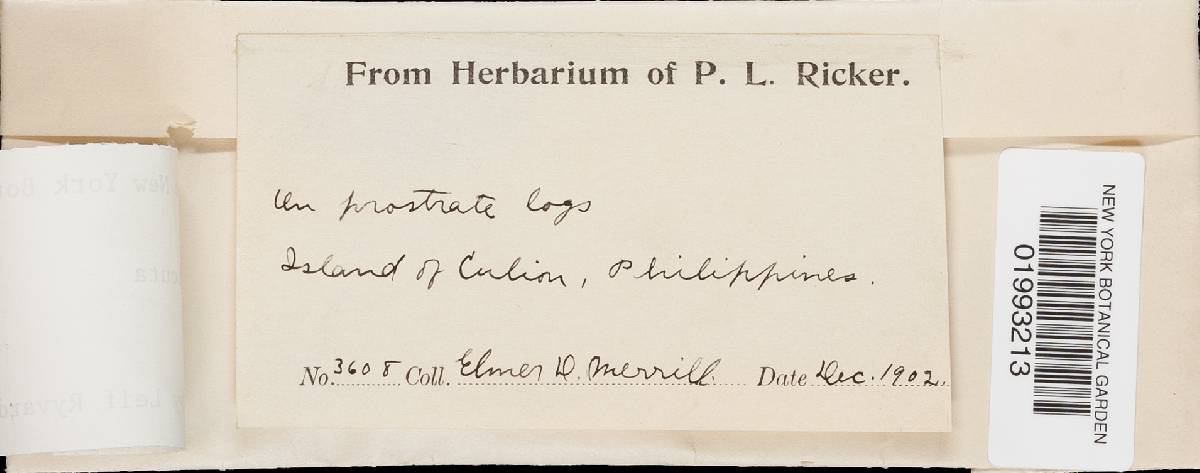 From Herbarium of P. L. Ricker.
On prostrate logs
Island of Culion, Philippines.
No. 3608 Coll. Elmer D. Merrill Date Dec. 1902.
NEW YORK BOTANICAL GARDEN
01993213
New York Bo
uta
Leif Ryvard